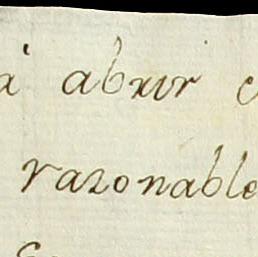 à abrir
razonable